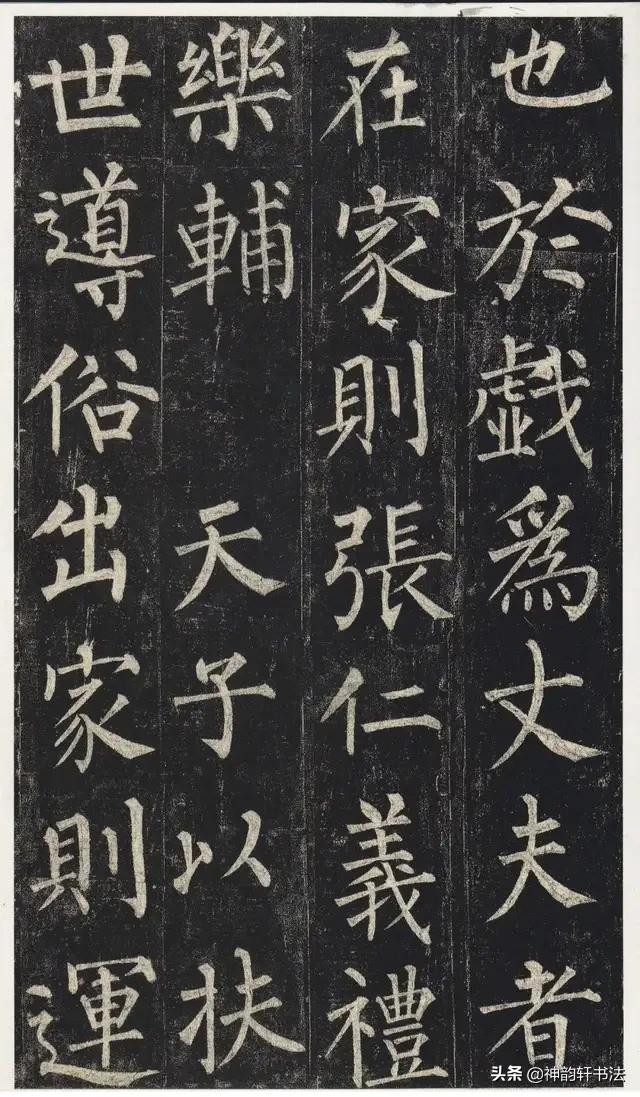 也於戲為丈夫者
在家則張仁義禮
樂輔天子以扶
世導俗出家則運
头条 @神韵轩书法